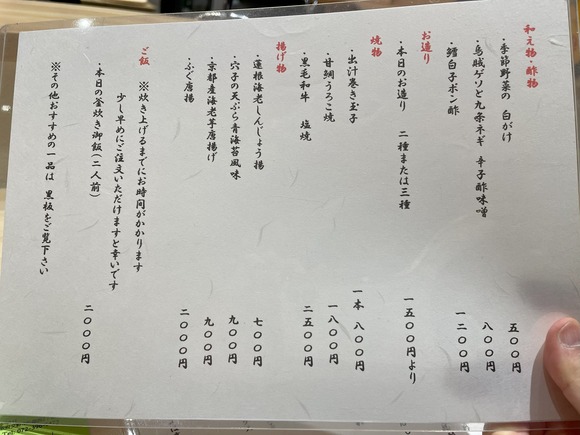 和え物・酢物
・季節野菜の 白がけ 五〇〇円
・烏賊ゲソと九条ネギ 辛子酢味噌 八〇〇円
・鱈白子ポン酢 一二〇〇円
お造り
・本日のお造り 二種または三種 一五〇〇円より
焼物
・出汁巻き玉子 一本 八〇〇円
・甘鯛うろこ焼 一八〇〇円
・黒毛和牛 塩焼 二五〇〇円
揚げ物
・蓮根海老しんじょう揚 七〇〇円
・穴子の天ぷら青海苔風味 九〇〇円
・京都産海老芋唐揚げ 九〇〇円
・ふぐ唐揚 二〇〇〇円
ご飯
※炊き上げるまでにお時間がかかります
少し早めにご注文いただけますと幸いです
・本日の釜炊き御飯(二人前) 二〇〇〇円
※その他おすすめの一品は 黒板をご覧下さい